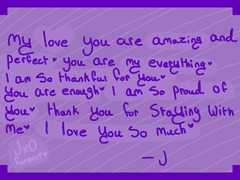 My love you are amazing and
perfect♥ you are my everything♥
I am so thankful for you♥
You are enough♥ I am so proud of
you♥ thank you for Staying With
Me♥ I love you So much♥
—J
JxO